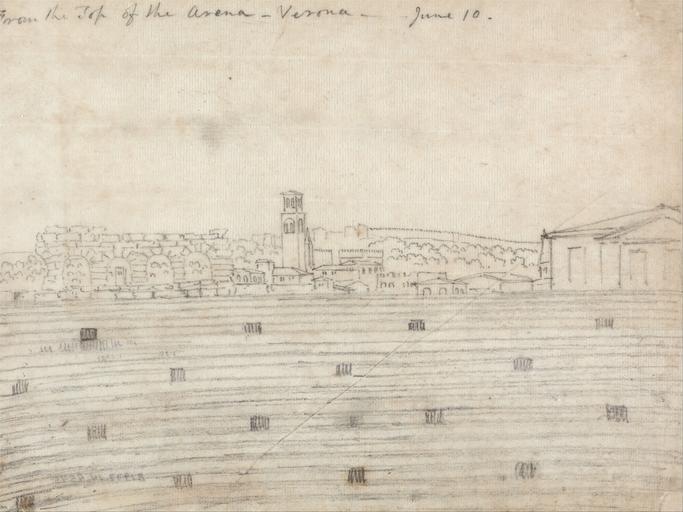 From the Top of the Arena - Verona - June 10.